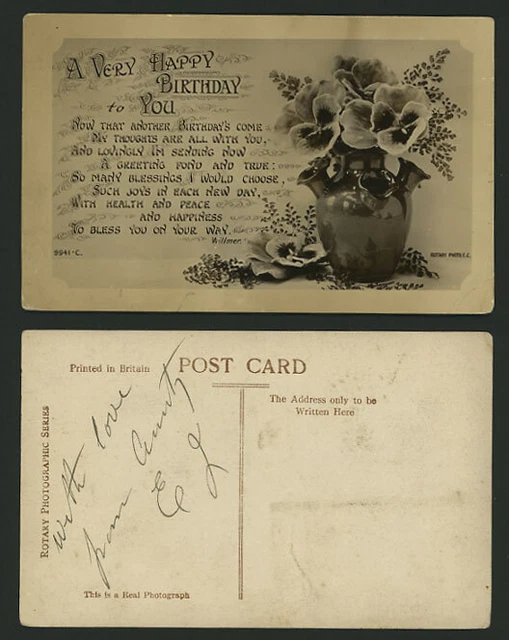 A VERY HAPPY
BIRTHDAY
to YOU
NOW THAT ANOTHER BIRTHDAY'S COME
MY THOUGHTS ARE ALL WITH YOU,
AND LOVINGLY I'M SENDING NOW
A GREETING FOND AND TRUE:
SO MANY BLESSINGS I WOULD CHOOSE,
SUCH JOYS IN EACH NEW DAY,
WITH HEALTH AND PEACE
AND HAPPINESS
TO BLESS YOU ON YOUR WAY.
Willmer.
9941-C.
ROTARY PHOTO, E.C.
Printed in Britain
POST CARD
The Address only to be
Written Here
ROTARY PHOTOGRAPHIC SERIES
with love
from Aunt
E J
This is a Real Photograph